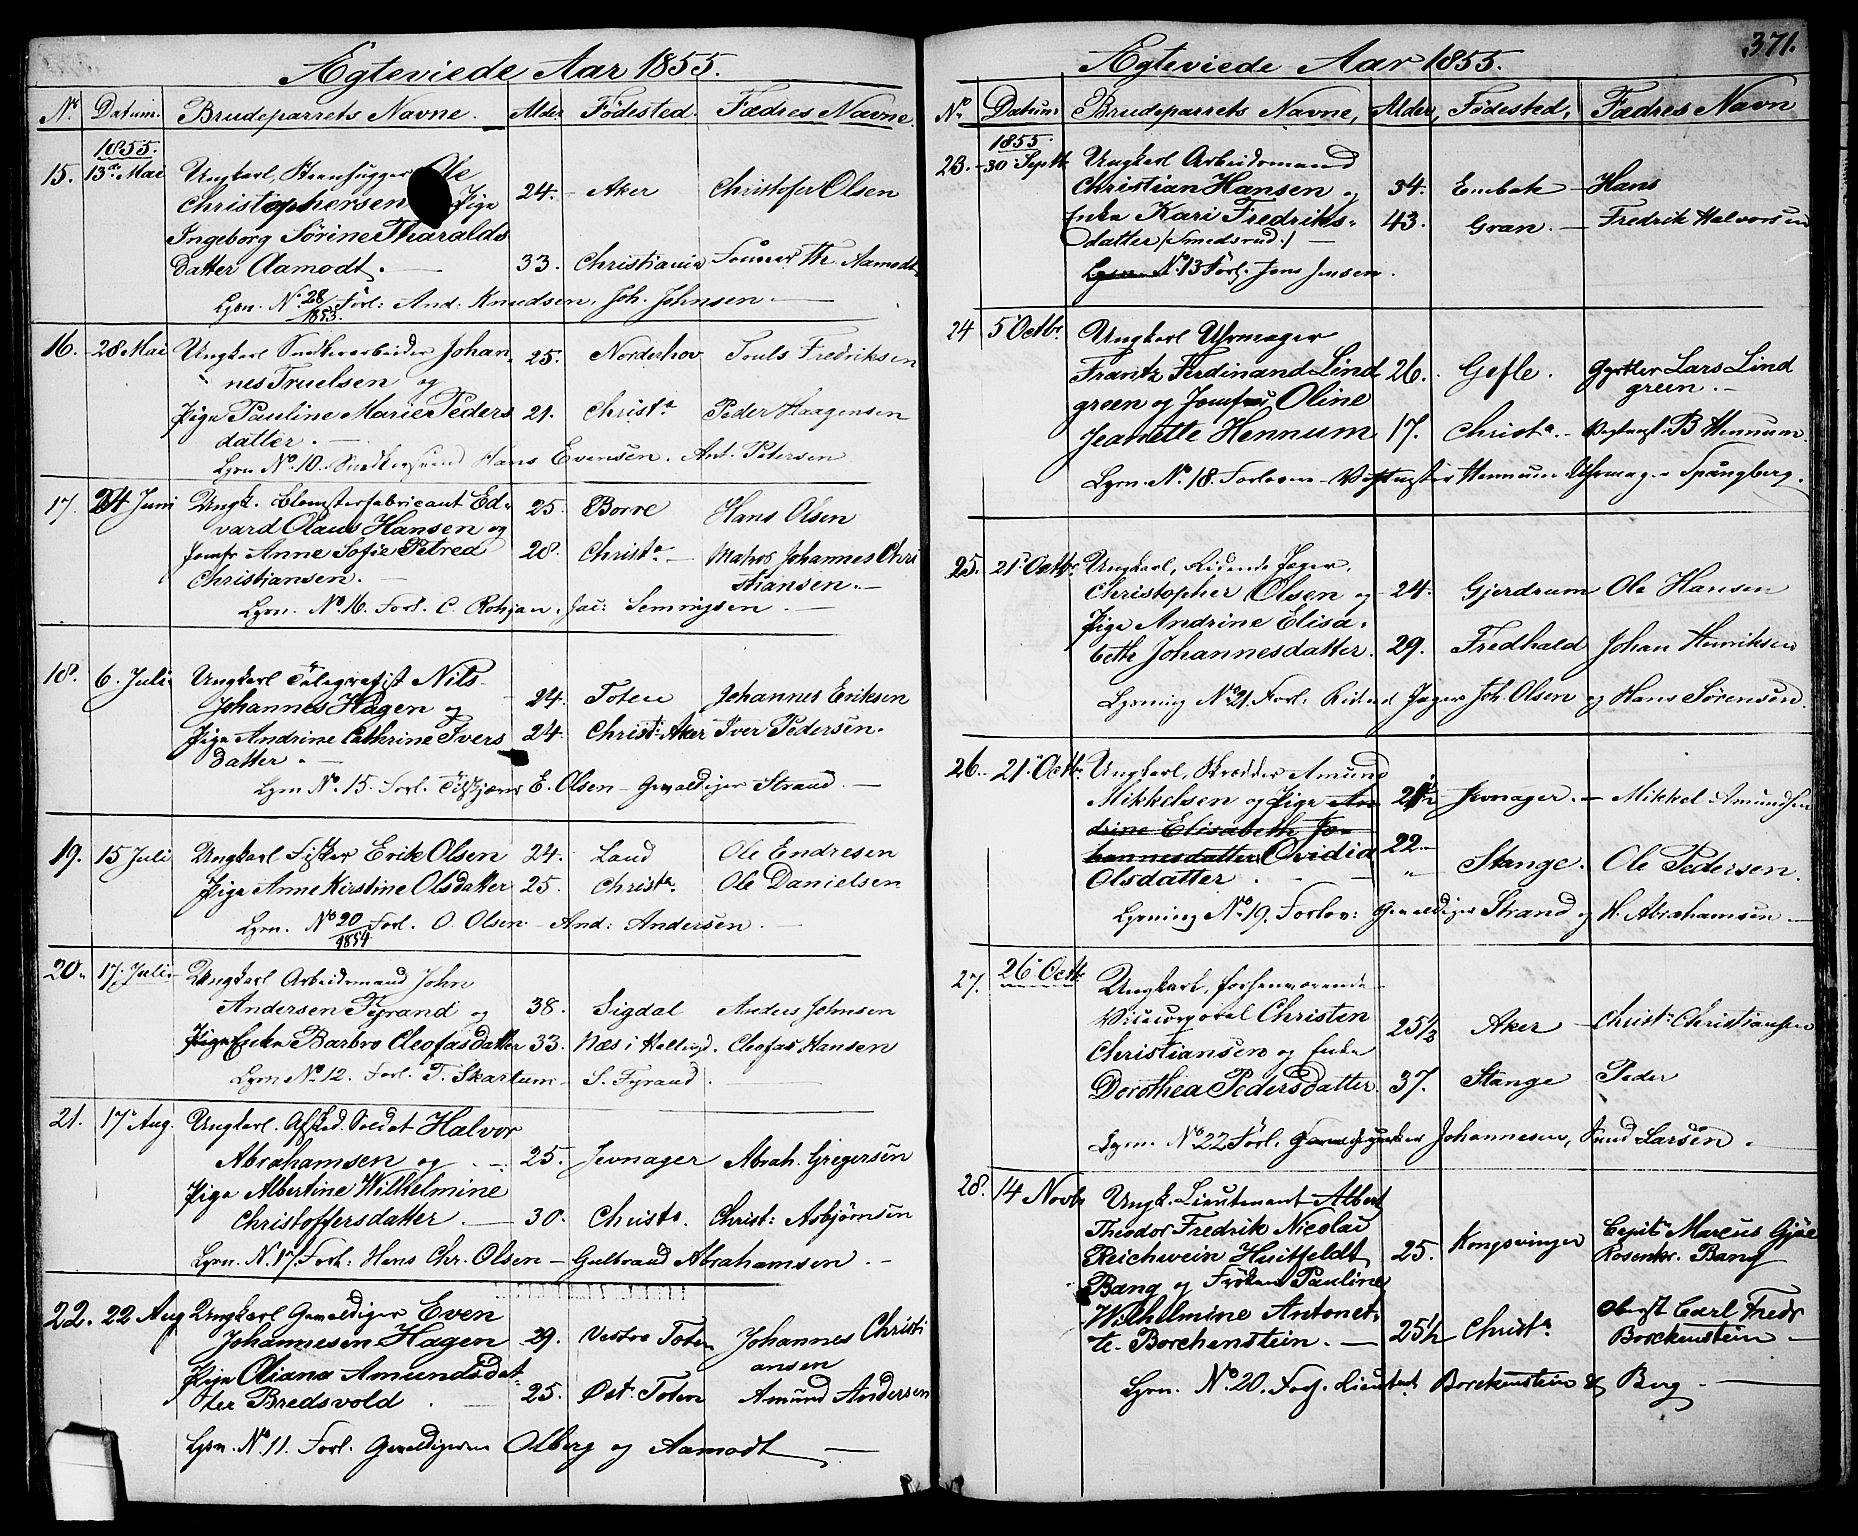 Ægteviede Aar 1855.
No. Datum. Brudeparrets Navne. Alder Fødested. Fædres Navne.
1855.
15. 13de Mai Ungkarl, Steenhugger Ole
Christophersen Pige 24. Aker Christofer Olsen
Ingeborg Sørine Tharalds
datter Aamodt. 33. Christiania Th. Aamodt
Lysn. No 28/1853. Forl: And: Knudsen, Joh. Johnsen.
16. 28 Mai Ungkarl Snedkerarbeider Johan- 25. Norderhov Fredriksen
nes Truelsen og
Pige Pauline Marie Peders 21. Christa Peder Haagensen
datter.
Lysn. No. 10. Snedkersvend Hans Evensen. Ant. Petersen
17. 24 Juni Ungk. Blomsterfabricant Ed- 25. Borre Hans Olsen
vard Olaus Hansen og
Jomfr Anne Sofie Petrea 28. Christa. Matros Johannes Chri
Christiansen. stiansen.
Lysn. No. 16. Forl. C. Jac: Semmingsen
18. 6. Juli Ungkarl Telegrafist Nils
Johannes Hagen og 24. Toten Johannes Eriksen
Pige Andrine Cathrine Ivers 24. Christ: Aker Iver Pedersen.
datter.
Lysn No. 15. Forl. E. Olsen - Gevaldiger Strand.
19. 15 Juli Ungkarl Fisker Erik Olsen 24. Land Ole Endresen
Pige Anne Kirstine Olsdatter 25. Christa. Ole Danielsen
Lysn. No 20/1854 Forl. O. Olsen - And: Andersen.
20. 17. Juli Ungkarl Arbeidsmand John
Andersen Fyrand og 38. Sigdal Anders Johnsen
Pige Enke Barbro Cleofasdatter 33. Næs i Hallingd. Cleofas Hansen
Lysn No. 12. Forl. T. Skartum - S. Fyrand.
21. 17. Aug. Ungkarl. Afsked. Soldat Halvor
Abrahamsen og 25. Jevnager Abrah. Gregersen
Pige Albertine Wilhelmine
Christoffersdatter. 30. Christa. Christ: Asbjørnsen
Lysn. N. 17. Forl: Hans Chr. Olsen - Gulbrand Abrahamsen.
22. 22 Aug Ungkarl Gevaldiger Even
Johannesen Hagen 29. Vestre Toten Johannes Christi
ansen
Pige Oliana Amundsdat-
ter Bredsvold 25. Øst. Toten Amund Andersen
Lysn. No. 11. Forl. Gevaldigerne Olberg og Aamodt
371.
Ægteviede Aar 1855.
No. Datum Brudeparrets Navne, Alder, Fødested, Fædres Navn
1855
23. 30 Septbr. Ungkarl Arbeidsmand
Christian Hansen og 34. Eidsbak Hans
Enke Kari Fredriks- 43. Gran. Fredrik Halvorsen
datter (Smedsrud.)
Lysn. No. 13 Forl. Jens Jensen.
24 5 Octbr. Ungkarl Uhrmager
Frantz Ferdinand Lind 26. Gefle. Gjørtler Lars Lind
green og Jomfru Oline green.
Jeanette Hennum 17. Christa. B Hennum.
Lysn. No. 18. Forlovere Hennum Uhrmag. Spångberg.
25. 21 Octbr. Ungkarl, Ridende Jæger.
Christopher Olsen og 24. Gjerdrum Ole Hansen
Pige Andrine Elisa-
bethe Johannesdatter. 29. Fredhald Johan Henriksen
Lysning No 21. Forl. Ridend Jæger Joh Olsen og Hans Sørensen.
26. 21. Octbr. Ungkarl, Skrædder Amund
Mikkelsen og Pige An 21½ Jevnager. Mikkel Amundsen
drine Elisabeth Jo-
hannesdatter Ovidia 22 Stange. Ole Pedersen.
Olsdatter
Lysning No. 19. Forlov: Gevaldiger Strand og H. Abrahamsen
27. 26 Octbr. Ungkarl, forhenværende
Vicecorporal Christen 25½ Aker Christn Christiansen
Christiansen og Enke
Dorothea Pedersdatter. 37. Stange Peder
Lysn. No. 22 Forl. Johannesen, Knud Larsen.
28. 14 Novbr Ungk. Lieutenant Albert
Theodor Fredrik Nicolai
Reichwein Huitfeldt 25. Kongsvinger Capitn Marcus Gjøe
Rosenkr. Bang
Bang og Frøken Pauline
Wilhelmine Antonet- 25½ Christa Oberst Carl Fredr
te Borchenstein. Borckenstein
Lysn. No. 20. Forl. Lieutnt. Borckenstein & Berg